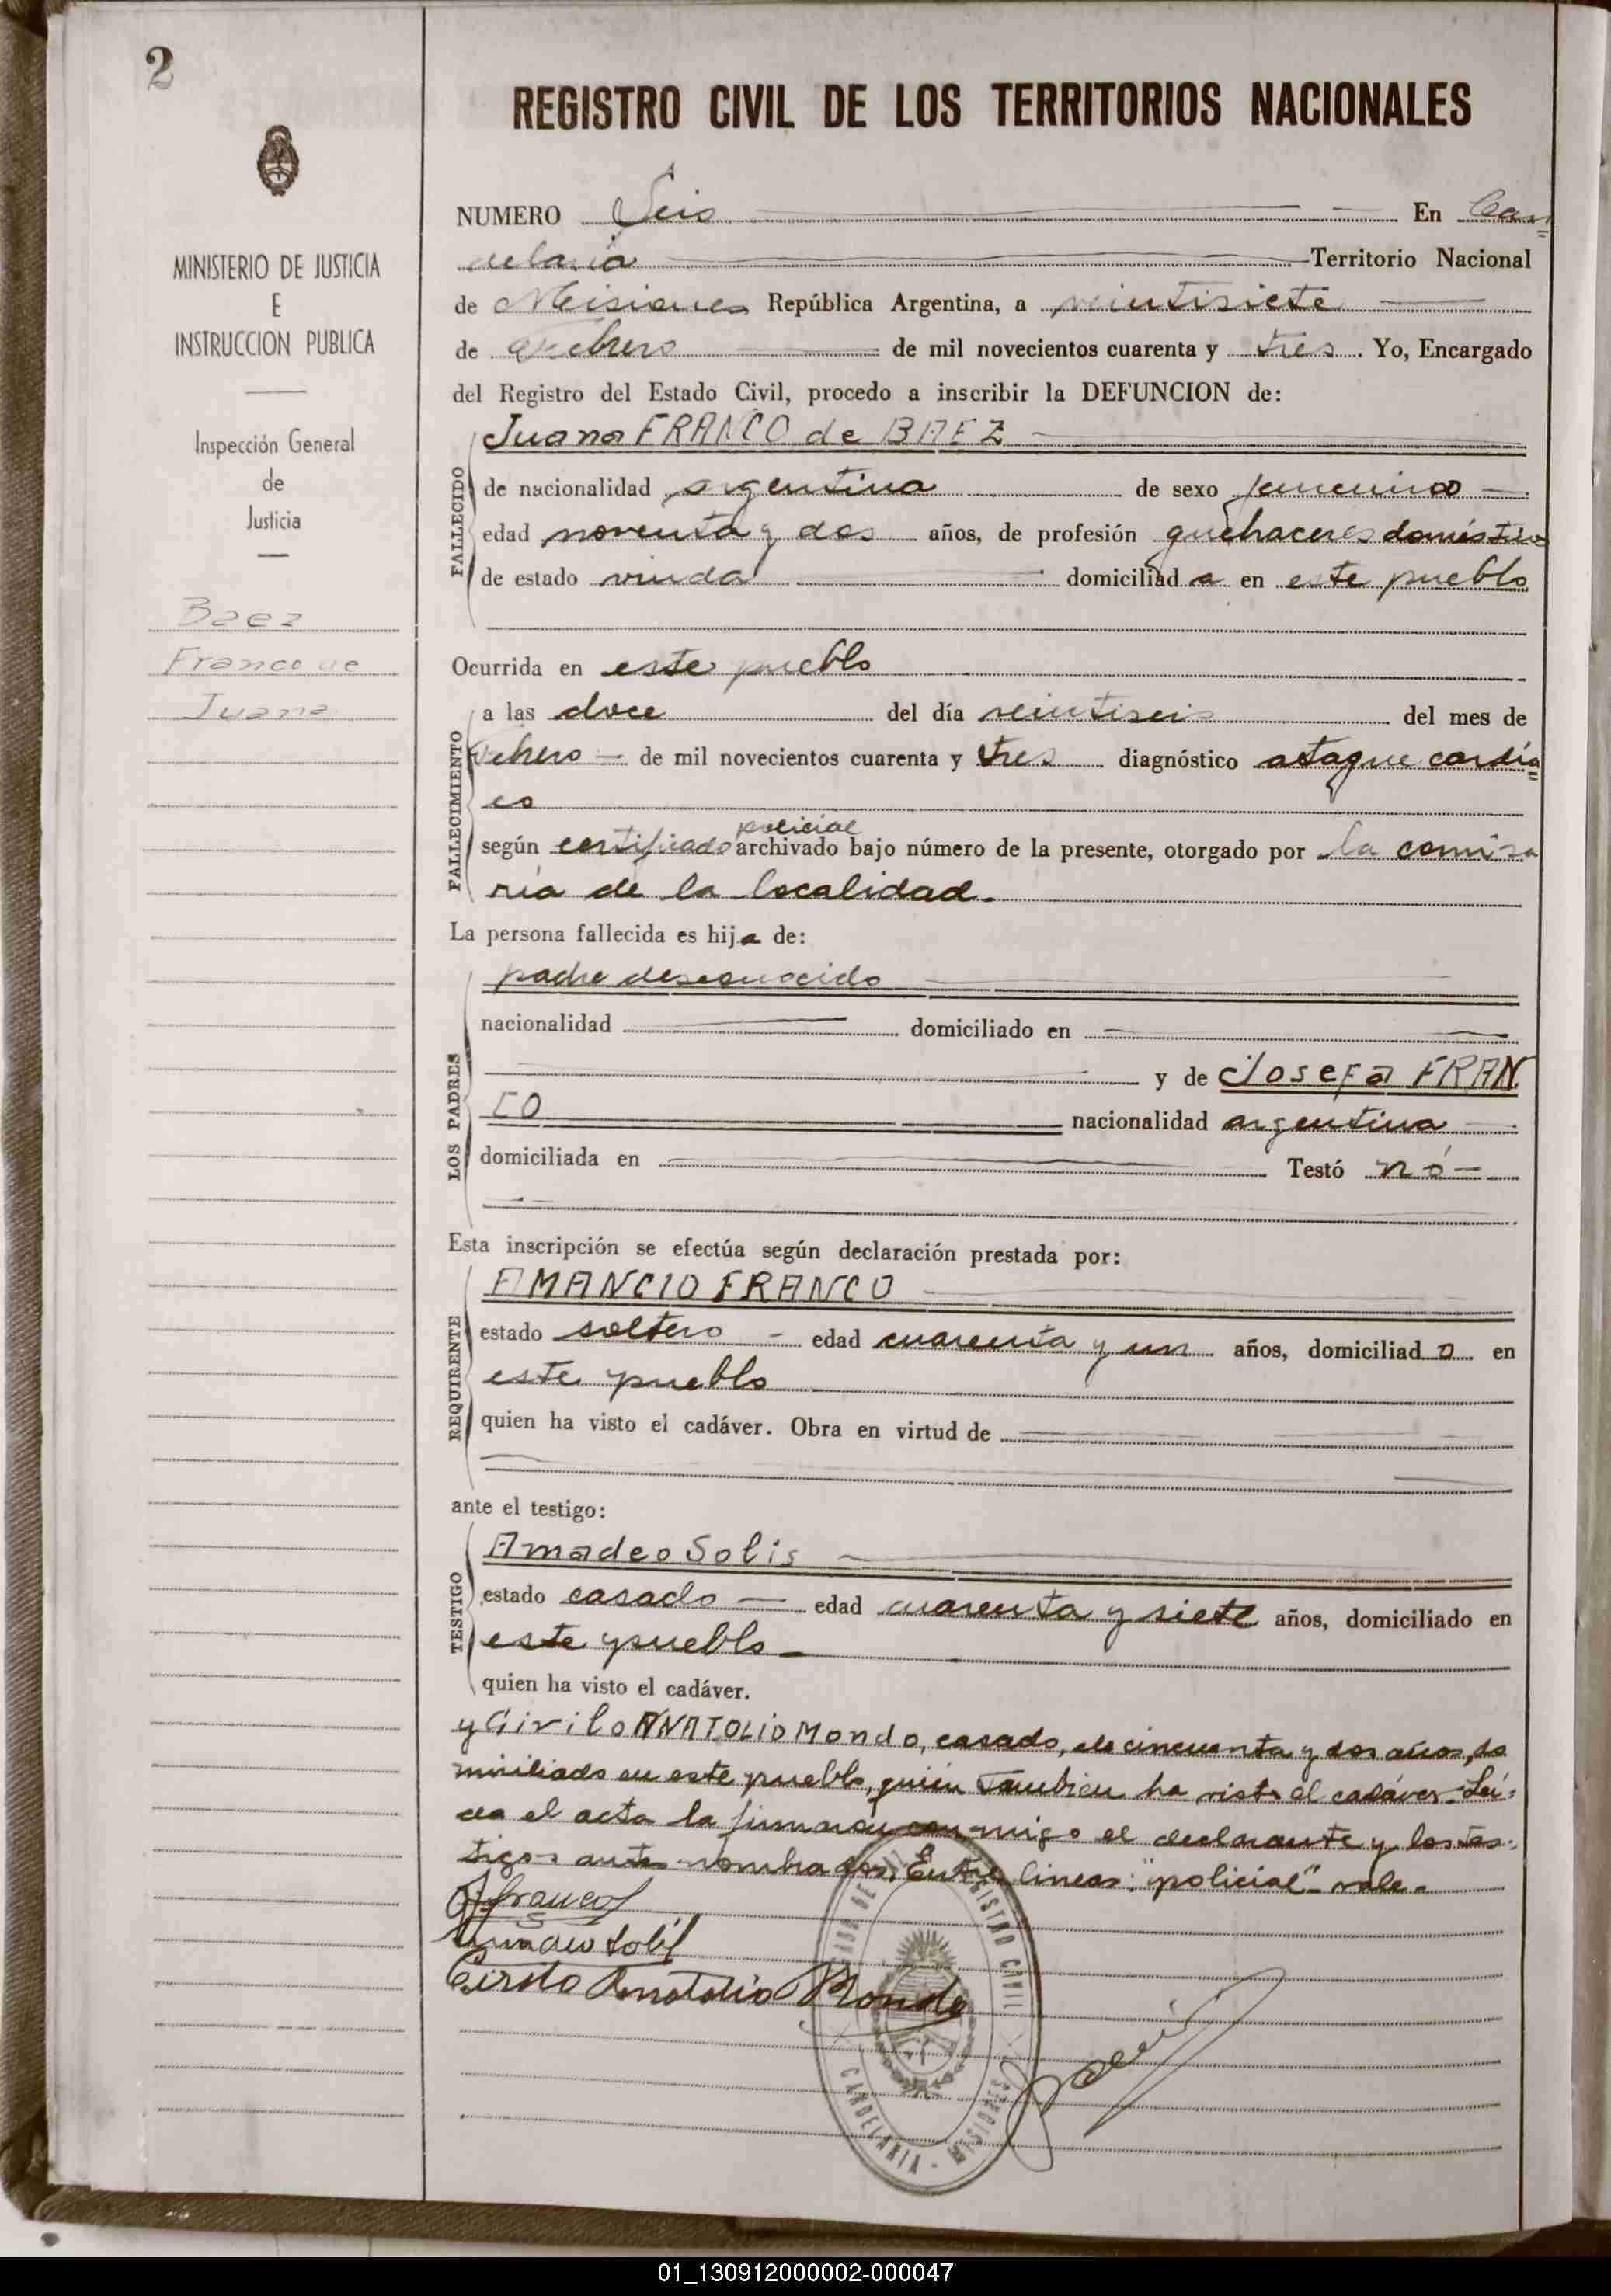 2
REGISTRO CIVIL DE LOS TERRITORIOS NACIONALES
MINISTERIO DE JUSTICIA
E
INSTRUCCION PUBLICA
Inspección General
de
Justicia
Baez
Franco de
Juana
NUMERO Seis En Can=
delaria Territorio Nacional
de Misiones República Argentina, a veintisiete
de Febrero de mil novecientos cuarenta y tres. Yo, Encargado
del Registro del Estado Civil, procedo a inscribir la DEFUNCION de:
Juana FRANCO de BAEZ
FALLECIDO
de nacionalidad argentina de sexo femenino
edad noventa y dos años, de profesión quehaceres domésticos
de estado viuda domiciliad a en este pueblo
Ocurrida en este pueblo
FALLECIMIENTO
a las doce del día veintiseis del mes de
Febrero de mil novecientos cuarenta y tres diagnóstico ataque cardía=
co
policial
según certificado archivado bajo número de la presente, otorgado por la comisa
ría de la localidad.
La persona fallecida es hija de:
LOS PADRES
padre desconocido
nacionalidad domiciliado en
y de Josefa FRAN
CO nacionalidad argentina
domiciliada en Testó nó
Esta inscripción se efectúa según declaración prestada por:
REQUIRENTE
AMANCIO FRANCO
estado soltero edad cuarenta y un años, domiciliad o en
este pueblo
quien ha visto el cadáver. Obra en virtud de
ante el testigo:
TESTIGO
Amadeo Solis
estado casado edad cuarenta y siete años, domiciliado en
este pueblo
quien ha visto el cadáver.
y Cirilo ANATOLIO Mondo, casado, de cincuenta y dos años, do
miciliado en este pueblo, quién tambien ha visto el cadáver. Leí=
da el acta la firmaron conmigo el declarante y los tes=
tigos antes nombrados. Entre lineas: "policial" vale.
A. Franco
Amadeo Solis
Cirilo Anatolio Mondo
REGISTRO CIVIL
CANDELARIA - MISIONES
01_130912000002-000047